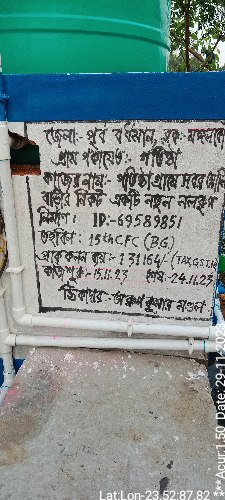 জেলা:- পূর্ব বর্ধমান, ব্লক- মঙ্গলকোট
গ্রাম পঞ্চায়েত:-
কাজের নাম:- গ্রামে
বাড়ীর নিকট একটি নতুন নলকূপ
নির্মাণ। ID:-69589851
তহবিল: 15th CFC (B.G)
প্রাক্কলন ব্যয়:- 131164/- (TAX,G.S.T.
কাজ শুরু:- 15.11.23 শেষ:- 24.11.23
ঠিকাদার:- কুমার মণ্ডল
Lat:Lon-23.52:87.82
***Acur:1.50 Date: 29-11-2023